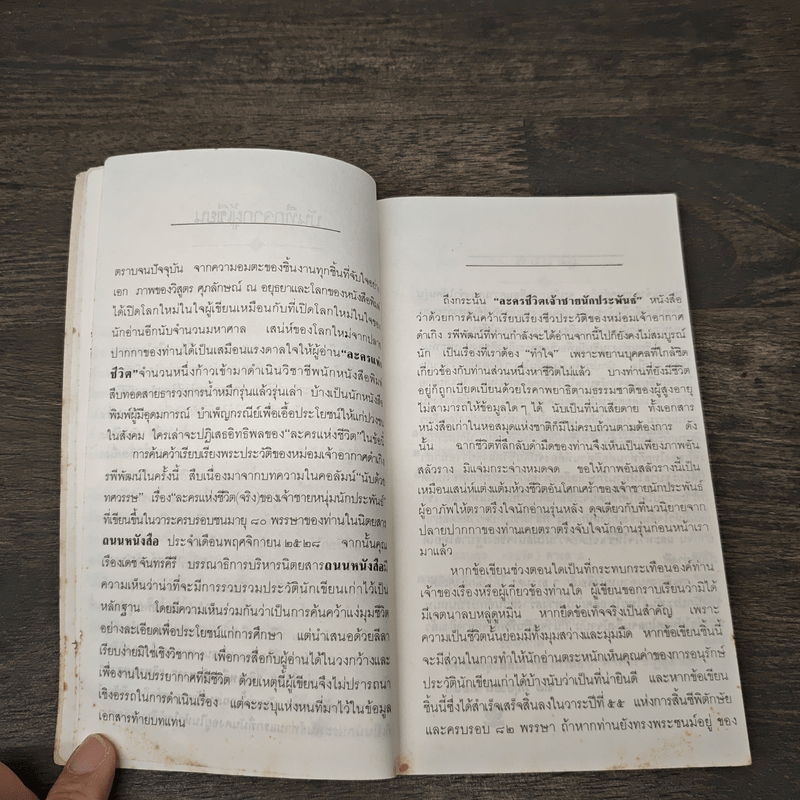 ตราบจนปัจจุบัน จากความอมตะของชิ้นงานทุกชิ้นที่จับใจอย่าง
เอก ภาพของวิสูตร ศุภลักษณ์ ณ อยุธยาและโลกของหนังสือพิมพ์
ได้เปิดโลกใหม่ในใจผู้เขียนเหมือนกับที่เปิดโลกใหม่ในใจของ
นักอ่านอีกนับจำนวนมหาศาล เสน่ห์ของโลกใหม่จากปลาย
ปากกาของท่านได้เป็นเสมือนแรงดาลใจให้ผู้อ่าน"ละครแห่ง
ชีวิต"จำนวนหนึ่งก้าวเข้ามาดำเนินวิชาชีพนักหนังสือพิมพ์
สืบทอดสายธารวงการน้ำหมึกรุ่นแล้วรุ่นเล่า บ้างเป็นนักหนังสือ
พิมพ์ผู้มีอุดมการณ์ บำเพ็ญกรณีย์เพื่อเอื้อประโยชน์ให้แก่ปวงชน
ในสังคม ใครเล่าจะปฏิเสธอิทธิพลของ"ละครแห่งชีวิต"ในข้อนี้
การค้นคว้าเรียบเรียงพระประวัติของหม่อมเจ้าอากาศดำเกิง
รพีพัฒน์ในครั้งนี้ สืบเนื่องมาจากบทความในคอลัมน์"นับด้วย
ทศวรรษ" เรื่อง"ละครแห่งชีวิต(จริง)ของเจ้าชายหนุ่มนักประพันธ์"
ที่เขียนขึ้นในวาระครบรอบชนมายุ ๘๐ พรรษาของท่านในนิตยสาร
ถนนหนังสือ ประจำเดือนพฤศจิกายน ๒๕๒๘ จากนั้นคุณ
เรืองเดช จันทรคีรี บรรณาธิการบริหารนิตยสารถนนหนังสือมี
ความเห็นว่าน่าที่จะมีการรวบรวมประวัตินักเขียนเก่าไว้เป็น
หลักฐาน โดยมีความเห็นร่วมกันว่าเป็นการค้นคว้าแง่มุมชีวิต
อย่างละเอียดเพื่อประโยชน์แก่การศึกษา แต่นำเสนอด้วยลีลา
เรียบง่ายมิใช่เชิงวิชาการ เพื่อการสื่อกับผู้อ่านได้ในวงกว้างและ
เพื่องานในบรรยากาศที่มีชีวิต ด้วยเหตุนี้ผู้เขียนจึงไม่ปรารถนา
เชิงอรรถในการดำเนินเรื่อง แต่จะระบุแห่งหนที่มาไว้ในข้อมูล
เอกสารท้ายบทแทน
ถึงกระนั้น "ละครชีวิตเจ้าชายนักประพันธ์" หนังสือ
ว่าด้วยการค้นคว้าเรียบเรียงชีวประวัติของหม่อมเจ้าอากาศ
ดำเกิง รพีพัฒน์ที่ท่านกำลังจะได้อ่านจากนี้ไปก็ยังคงไม่สมบูรณ์
นัก เป็นเรื่องที่เราต้อง "ทำใจ" เพราะพยานบุคคลที่ใกล้ชิด
เกี่ยวข้องกับท่านส่วนหนึ่งหาชีวิตไม่แล้ว บางท่านที่ยังมีชีวิต
อยู่ก็ถูกเบียดเบียนด้วยโรคาพยาธิตามธรรมชาติของผู้สูงอายุ
ไม่สามารถให้ข้อมูลใดๆ ได้ นับเป็นที่น่าเสียดาย ทั้งเอกสาร
หนังสือเก่าในหอสมุดแห่งชาติก็มีไม่ครบถ้วนตามต้องการ ดัง
นั้น ฉากชีวิตที่ลึกลับดำมืดของท่านจึงเห็นเป็นเพียงภาพอัน
สลัวราง มิแจ่มกระจ่างหมดจด ขอให้ภาพอันสลัวรางนี้เป็น
เหมือนเสน่ห์แต่งแต้มห้วงชีวิตอันโศกเศร้าของเจ้าชายนักประพันธ์
ผู้อาภัพให้ตราตรึงใจนักอ่านรุ่นหลัง ดุจเดียวกับที่นวนิยายจาก
ปลายปากกาของท่านเคยตราตรึงจับใจนักอ่านรุ่นก่อนหน้าเรา
มาแล้ว
หากข้อเขียนช่วงตอนใดเป็นที่กระทบกระเทือนองค์ท่าน
เจ้าของเรื่องหรือผู้เกี่ยวข้องท่านใด ผู้เขียนขอกราบเรียนว่ามิได้
มีเจตนาลบหลู่ดูหมิ่น หากยึดข้อเท็จจริงเป็นสำคัญ เพราะ
ความเป็นชีวิตนั้นย่อมมีทั้งมุมสว่างและมุมมืด หากข้อเขียนชิ้นนี้
จะมีส่วนในการทำให้นักอ่านตระหนักเห็นคุณค่าของการอนุรักษ์
ประวัตินักเขียนเก่าได้บ้างนับว่าเป็นที่น่ายินดี และหากข้อเขียน
ชิ้นนี้ซึ่งได้สำเร็จเสร็จสิ้นลงในวาระปีที่ ๕๕ แห่งการสิ้นชีพิตักษัย
และครบรอบ ๘๒ พรรษา ถ้าหากท่านยังทรงพระชนม์อยู่ ของ